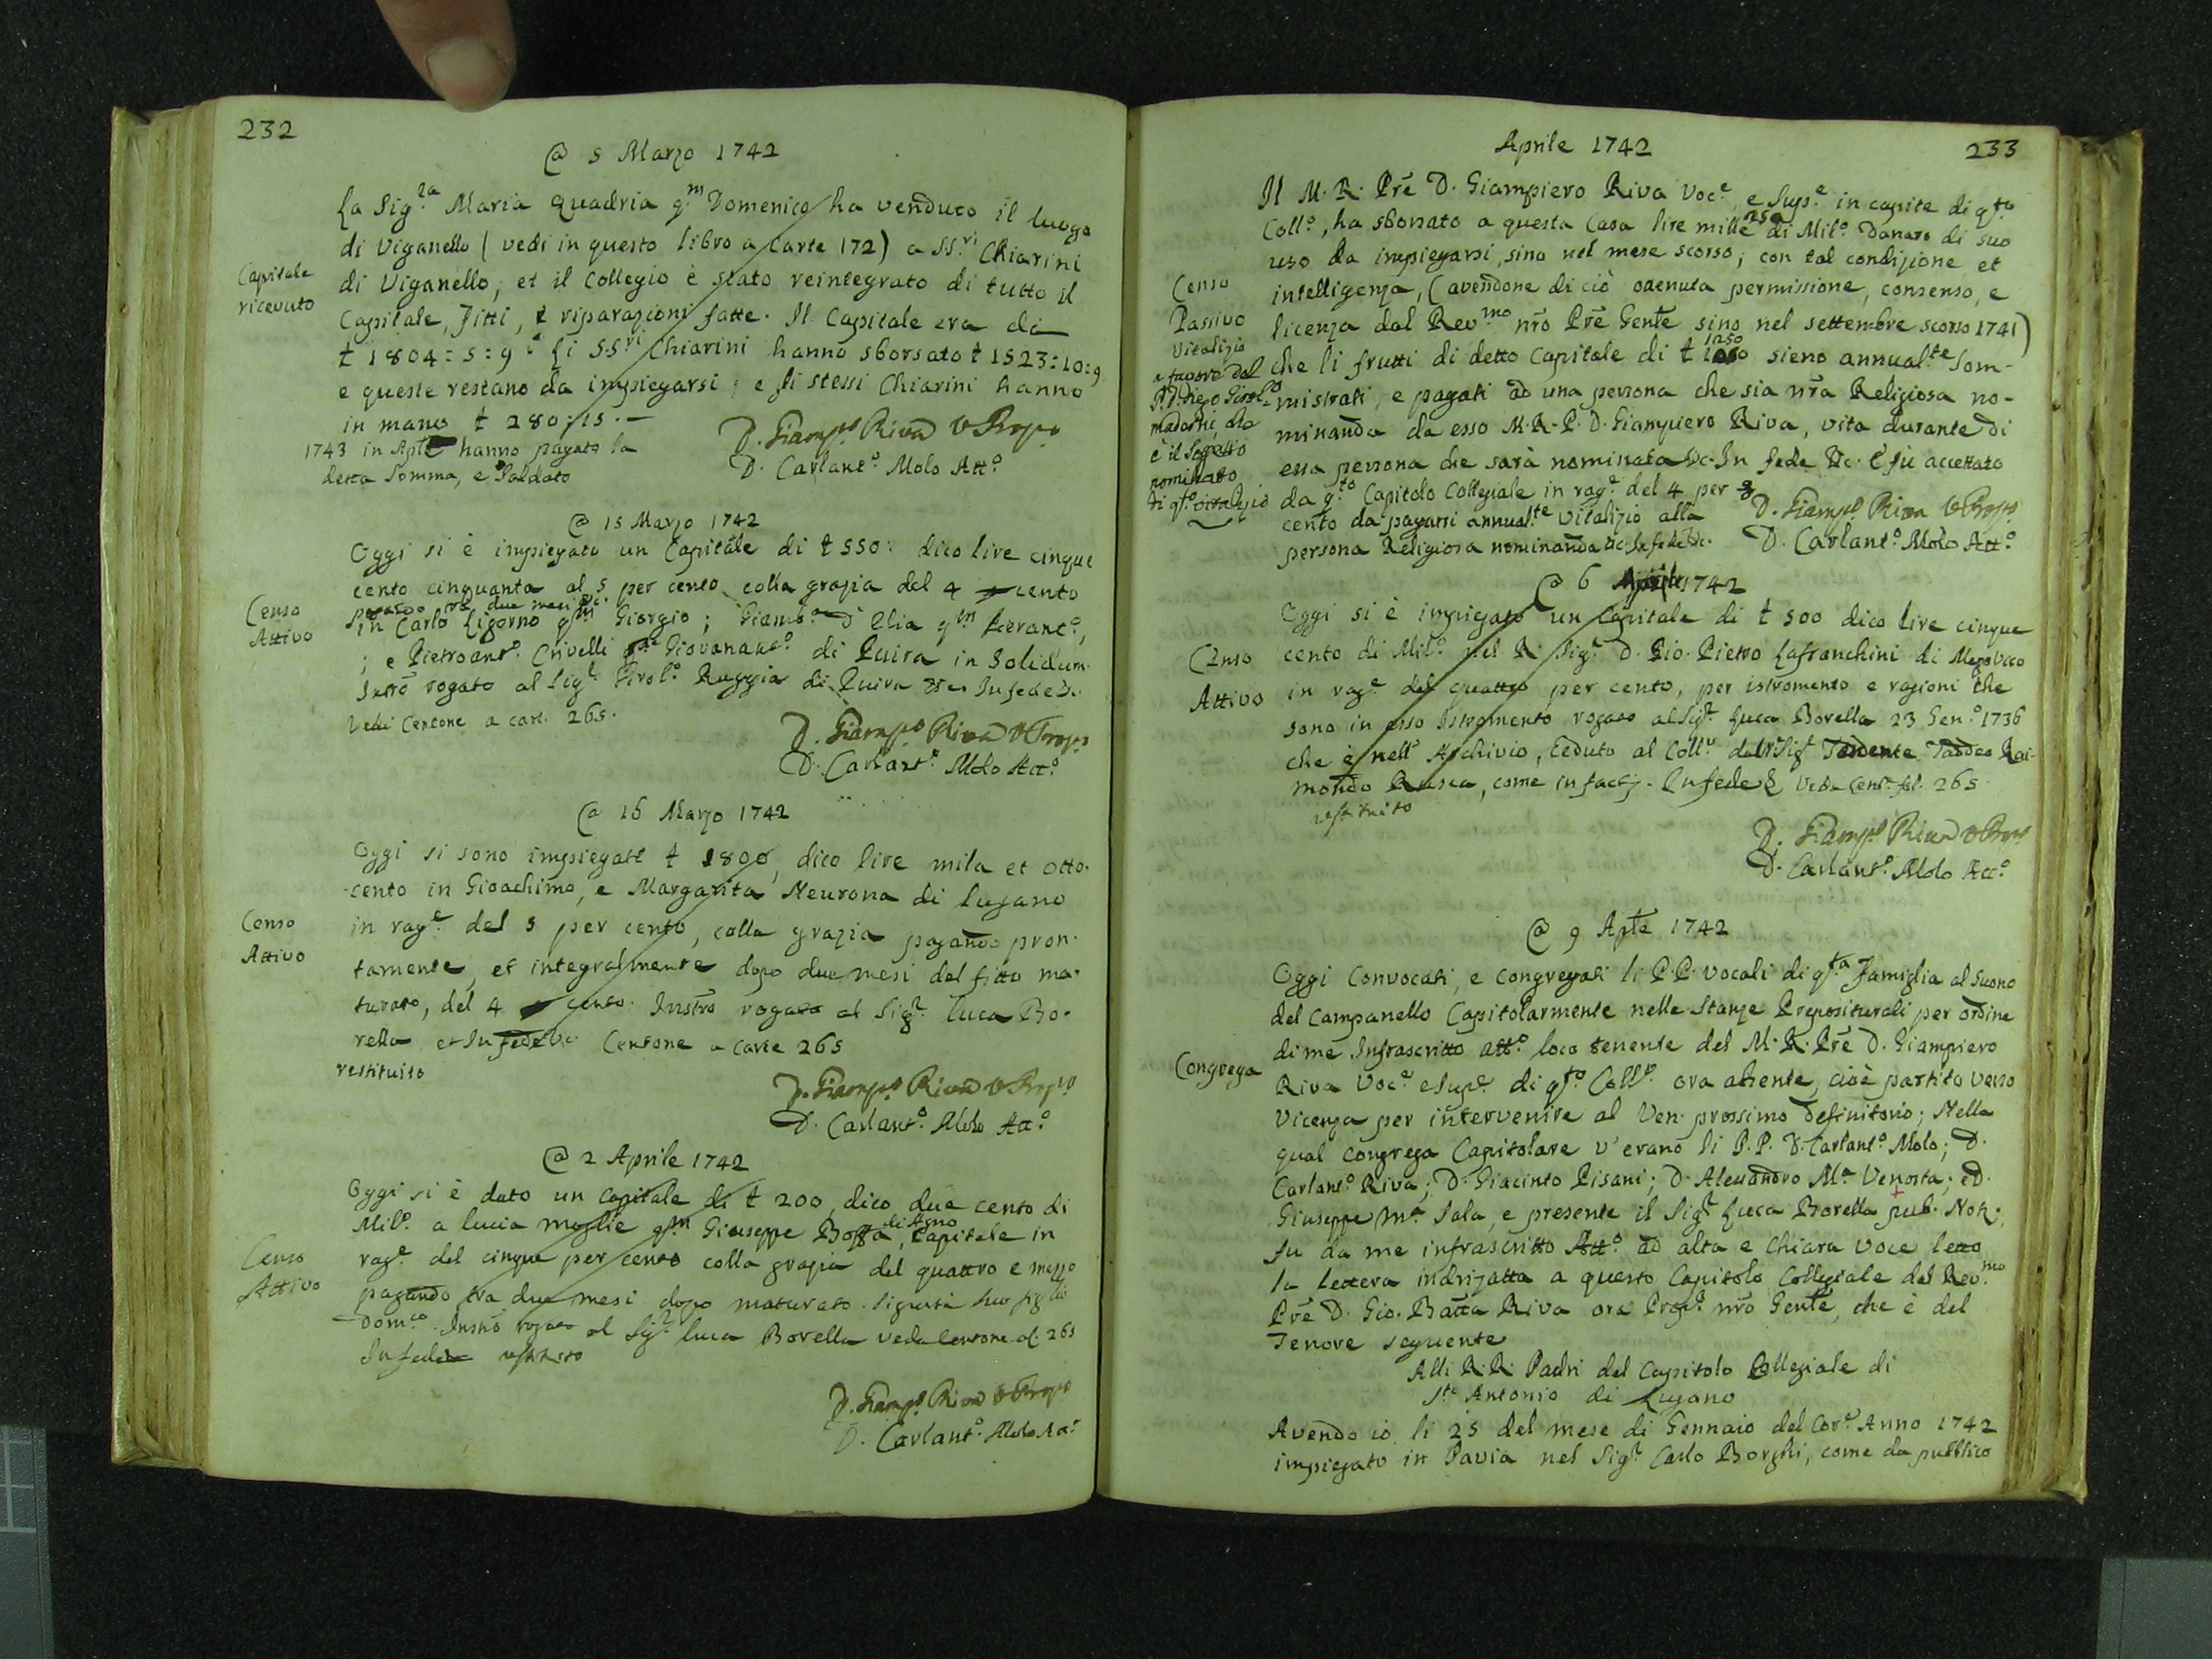 232
@ 5 Marzo 1742
La Sig.ra Maria Quadria q.m Domenico ha venduto il luogo
di Viganello (vedi in questo libro a Carte 172) a SS.ri Chiarini
Capitale ricevuto
di Viganello, et il Collegio è stato reintegrato di tutto il
Capitale, fitti, e riparazioni fatte. Il Capitale era di
ŧ 1804:5:9. Li SS.ri Chiarini hanno sborsato ŧ 1523:10:9
e queste restano da impiegarsi; e li stessi Chiarini hanno
in mano ŧ 280:15.—
1743 in Aple hanno pagato la
detta Somma, e Saldato
D. Giamp.o Riva V Prep.o
D. Carlant.o Molo Att.o
@ 15 Marzo 1742
Oggi si è impiegato un Capitale di ŧ 550: dico lire cinque
cento cinquanta al 5 per cento colla grazia del 4 cento
pagando tra due mesi &c.
Censo
Attivo
in Carlo Ligorno q.m Giorgio; Giamb.a D Elia q.m
; e Pietroant.o Crivelli Giovanant.o di Puira in Solidum.
rogato al Sig.r Girol.o Ruggia di Puira &c. In fede &c.
Vedi Centone a cart. 265.
D. Giamp.o Riva V Prep.o
D. Carlant.o Molo Att.o
@ 16 Marzo 1742
Oggi si sono impiegate ŧ 1800, dico lire mila et otto-
cento in Gioachimo, e Margarita Neurona di Lugano
Censo
Attivo
in rag.e del 5 per cento, colla grazia pagando pron-
tamente, et integralmente dopo due mesi del fitto ma-
turato, del 4 cento. Instro rogato al Sig.r Luca Bo-
rella et In fede &c Centone a carte 265
restituito
D. Giamp.o Riva V Prep.o
D. Carlant.o Molo Att.o
@ 2 Aprile 1742
Oggi si è dato un Capitale di ŧ 200, dico due cento di
Mil.o a Lucia moglie q.m Giuseppe Bossa di Agno, Capitale in
Censo
Attivo
rag.e del cinque per cento colla grazia del quattro e mezzo
pagando tra due mesi dopo maturato. Sigurtà suo figlio
Dom.co. Instro rogato al Sig.r Luca Borella veda Centone al. 265
In fede restituito
D. Giamp.o Riva V Prep.o
D. Carlant.o Molo Att.o
Aprile 1742
233
Il M. R. Pre D. Giampiero Riva Voc.e, e Sup.e in capite di q.to
Coll.o, ha sborsato a questa Casa lire mille 250 di Mil.o Danaro di suo
uso da impiegarsi, sino nel mese scorso, con tal condizione et
intelligenza, (avendone di ciò otenuta permissione, consenso, e
licenza dal Rev.mo nro Pre Gente sino nel settembre scorso 1741)
che li frutti di detto Capitale di ŧ 1250 sieno annual.te som-
mistrati, e pagati ad una persona che sia nra Religiosa no-
minanda da esso M. R. P. D. Giampiero Riva, vita durante di
essa persona che sarà nominata &c. In fede &c. E fù accettato
da q.to Capitolo Collegiale in rag.e del 4 per
cento da pagarsi annual.te vitalizio alla
persona Religiosa nominanda &c. In fede &c.
Censo
Passivo
Vitalizio
a favore del
P. Diego Girol.o
Madorni, che
è il Soggetto
nominato
di q.to vitalizio
D. Giamp.o Riva V Prep.o
D. Carlant.o Molo Att.o
@ 6 Aprile 1742
Oggi si è impiegato un Capitale di ŧ 500 dico lire cinque
Censo
Attivo
cento di Mil.o nel R. Sig.r D. Gio. Pietro Lafranchini di Mezovico
in rag.e del quattro per cento, per istromento e ragioni che
sono in esso Istromento rogato al Sig.r Luca Borella 23 Gen.o 1736
che è nell' Archivio, ceduto al Coll.o dal Sig.r Tenente Tadeo Rai-
mondo Rusca, come in facti. In fede & Veda Cent.e fol. 265.
restituito
D. Giamp.o Riva V Prep.o
D. Carlant.o Molo Att.o
@ 9 Aple 1742
Oggi Convocati, e congregati li P.P. vocali di q.ta famiglia al suono
del Campanello Capitolarmente nelle Stanze Prepositurali per ordine
Congrega
di me Infrascritto att.o loco tenente del M. R. Pre D. Giampiero
Riva Voc.e e Sup.e di q.to Coll.o ora absente, cioè partito verso
Vicenza per intervenire al Ven. prossimo Definitorio; Nella
qual congrega Capitolare v'erano li P. P. D. Carlant.o Molo; D.
Carlant.o Riva; D. Giacinto Pisani; D. Alessandro M.a Venosta; e D.
Giuseppe M.a Sala, e presente il Sig.r Luca Borella pub. Not.
fu da me infrascritto Att.o ad alta e chiara voce letto
la lettera indrizatta a questo Capitolo Collegiale del Rev.mo
Pre D. Gio. Batta Riva ora Prep.o nro Gente, che è del
Tenore seguente
Alli R. R. Padri del Capitolo Collegiale di
S.to Antonio di Lugano
Avendo io li 25 del mese di Gennaio del Cor.e Anno 1742
impiegato in Pavia nel Sig.r Carlo Borghi, come da pubblico